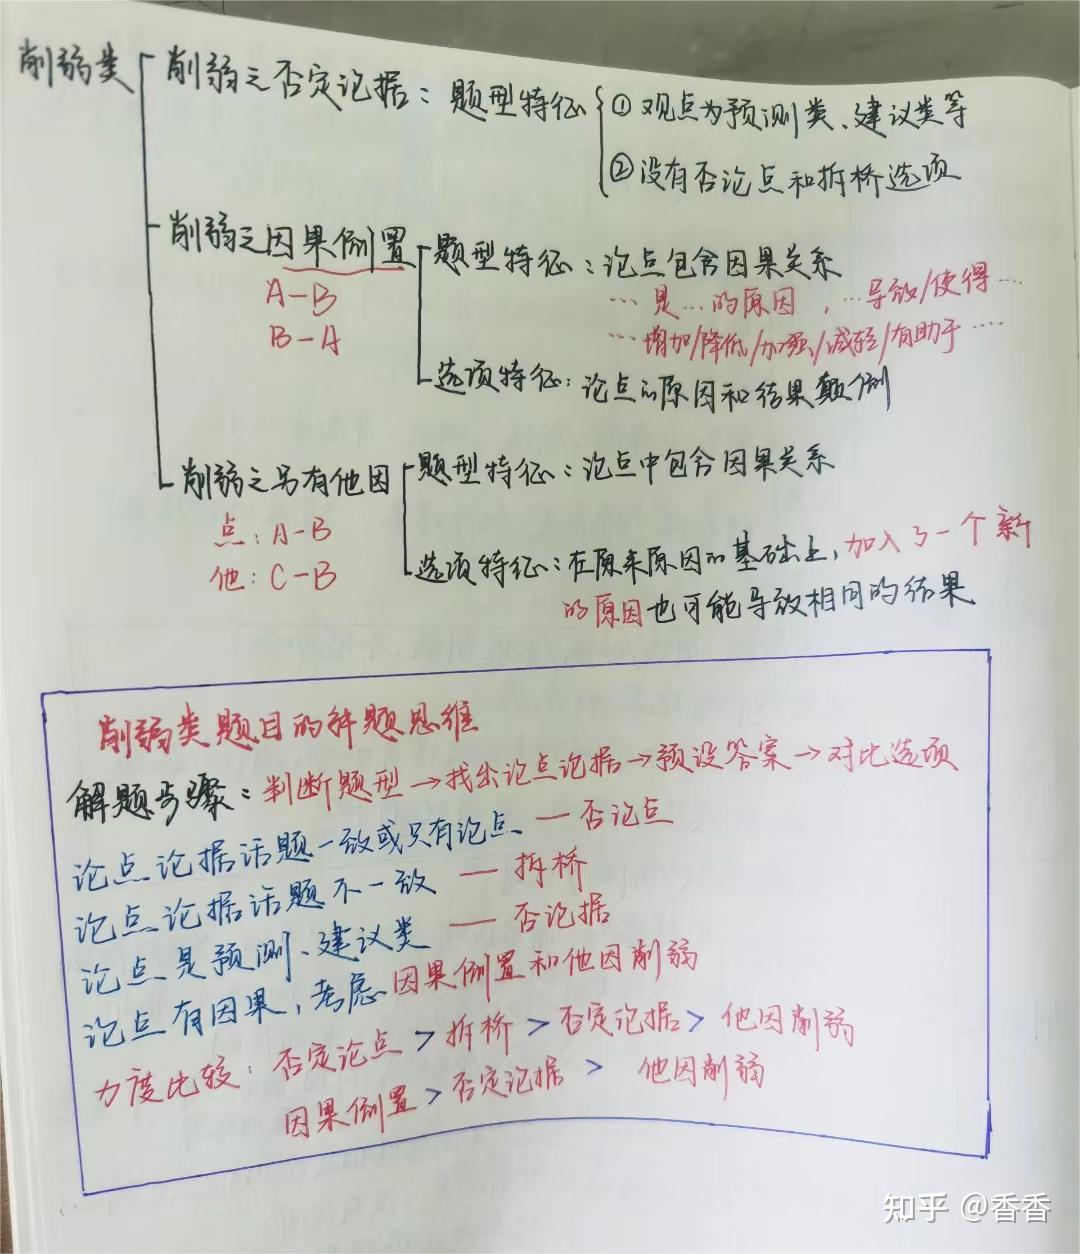 削弱类
削弱之否定论据：题型特征
①观点为预测类、建议类等
②没有否论点和拆桥选项
削弱之因果倒置
A-B
B-A
题型特征：论点包含因果关系
…是…的原因，…导致/使得…
…增加/降低/加强/减轻/有助于…
选项特征：论点的原因和结果颠倒
削弱之另有他因
点：A-B
他：C-B
题型特征：论点中包含因果关系
选项特征：在原来原因的基础上，加入了一个新
的原因也可能导致相同的结果
削弱类题目的解题思维
解题步骤：判断题型→找出论点论据→预设答案→对比选项
论点论据话题一致或只有论点 — 否论点
论点论据话题不一致 — 拆桥
论点是预测、建议类 — 否论据
论点有因果，考虑因果倒置和他因削弱
力度比较：否定论点>拆桥>否定论据>他因削弱
因果倒置>否定论据>他因削弱
知乎 @香香